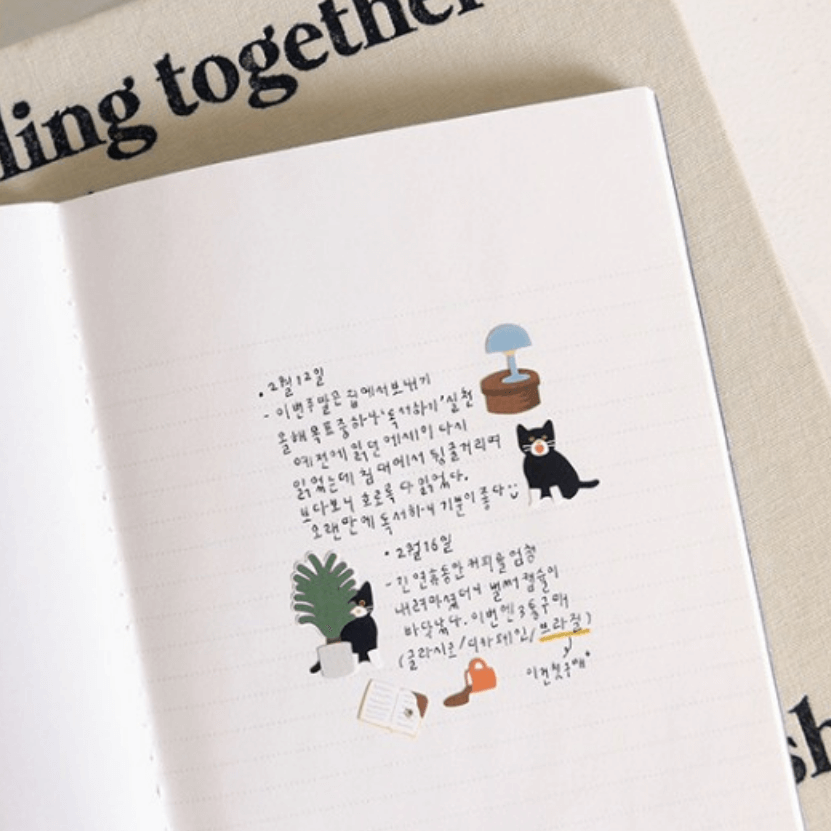 ling together
• 2월 12일
- 이번주말은 집에서 보내기
올해 목표중 하나 '독서하기' 실천
예전에 읽던 에세이 다시
읽었는데 침대에서 뒹굴거리며
보다보니 호로록 다 읽었다.
오랜만에 독서하니 기분이 좋다
• 2월 16일
- 긴 연휴동안 커피를 엄청
내려마셨더니 벌써 캡슐이
바닥났다. 이번엔 3통구매
(콜라시로/디카페인/브라질)
이건첫구매*
sh